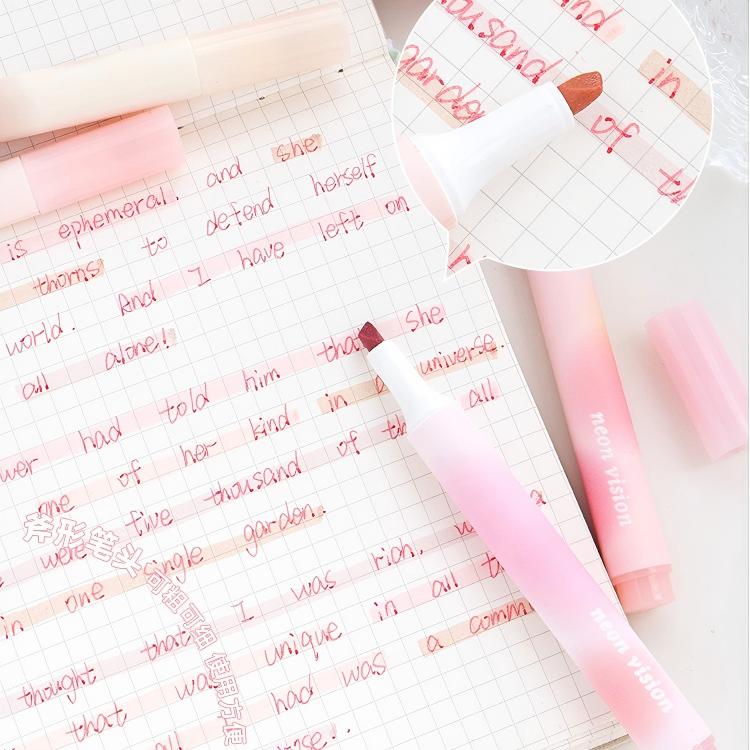 and she
is ephemeral. to defend herself
thorns
world. And I have left on
all alone!
had told him that she
one of her kind in a universe.
were five thousand of all
in one single garden.
that I was rich, a
thought that was unique in all
that had was a comm
all
thousand
and
garden
in
of
斧形笔头 可粗可细 使用方便
neon vision
neon vision